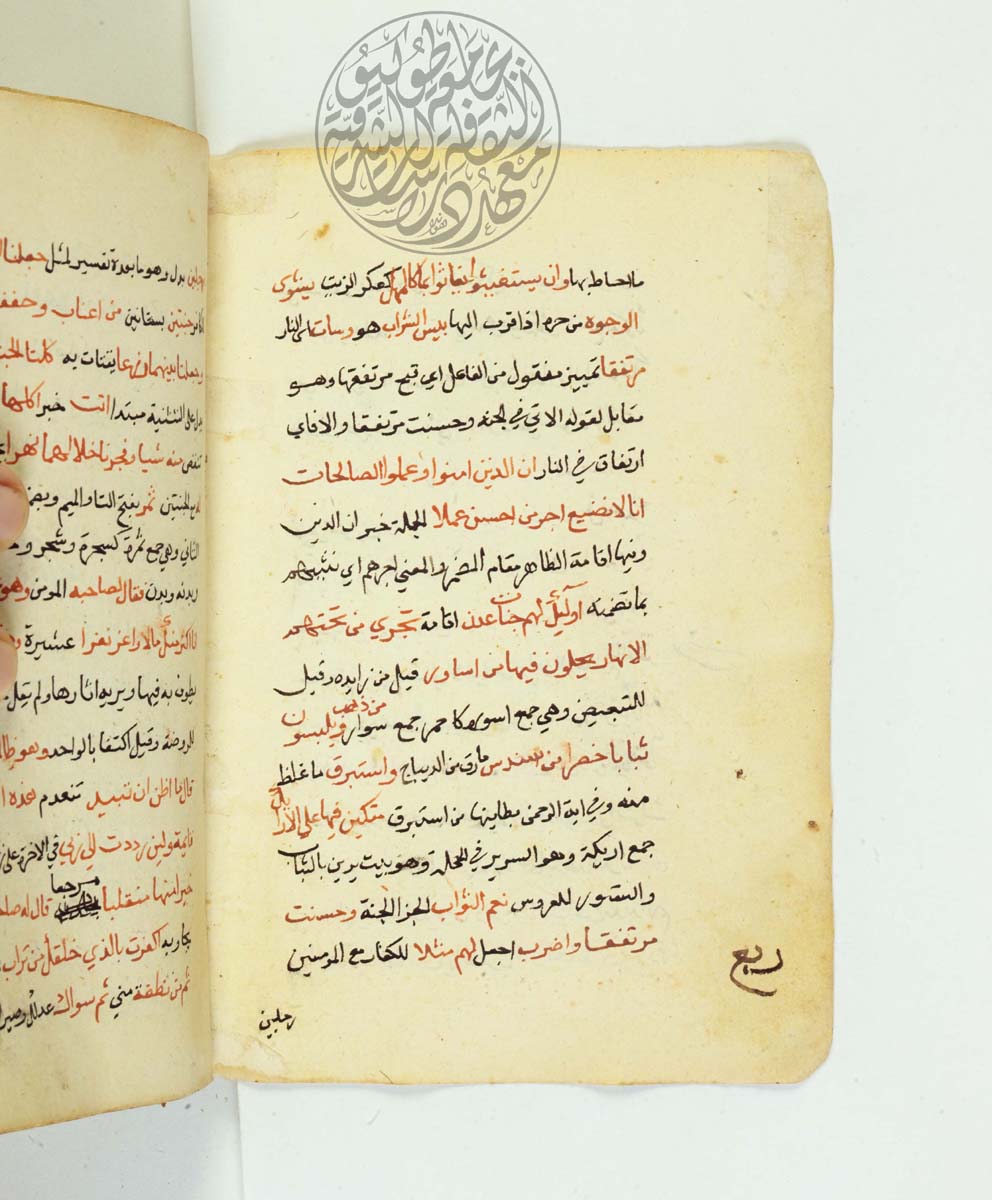 ما احاط بها وان يستغيثوا يغاثوا بماء كالمهل كعكر الزيت يشوى
الوجوه من حره اذا قرب اليها بيس الشراب هو وساءت اى النار
مرتفقا تمييز منقول من الفاعل اي قبح مرتفقها وهو
مقابل لقوله الاتي في الجنه وحسنت مرتفقا والا فاي
ارتفاق في النار ان الذين امنوا وعملوا الصالحات
انا لا نضيع اجر من احسن عملا الجملة خبر ان الذين
وفيها اقامة الظاهر مقام المضمر والمعني اجرهم اي نثيبهم
بما تضمنه اوليك لهم جنات عدن اقامة تجري من تحتهم
الانهار يحلون فيها من اساور قيل من زايده وقيل
للتبعيض وهي جمع اسورة كاحمرة جمع سوار من ذهب ويلبسون
ثيابا خضرا من سندس مارق من الديباج واستبرق ما غلظ
منه وفي اية الرحمن بطاينها من استبرق متكين فيها على الارايك
جمع اريكة وهو السرير في الحجلة وهو بيت يزين بالثياب
والستور للعروس نعم الثواب الجزا الجنة وحسنت
مرتفقا واضرب اجعل لهم مثلا للكفار مع المومنين
ربع
رجلين
رجلين بدل وهو ما بعدة تفسير للمثل جعلنا
جنتين بساتين من اعناب وحفف
وجعلنا بينهما زرعا يقتات به كلتا الجنت
على التثنية مبتدا اتت خبر اكلها
تنقص منه شيا وفجرنا خلالهما نهرا
الجنتين ثمر بفتح الثا والميم وبضم
الثاني وهي جمع ثمرة كشجرة وشجر و
وبدنه وبدن فقال لصاحبه المومن وهو
انا اكثر منك مالا واعز نفرا عشيرة
يطوف به فيها ويريه اثارها ولم يقل
للروضة وقيل اكتفا بالواحد وهو ظالم
قال ما اظن ان تبيد تنعدم هذه ا
قايمة ولين رددت الي ربي في الاخرة على
خيرا منها منقلبا مرجعا قال له صاح
يجاوبه اكفرت بالذي خلقك من تراب
ثم من نطفة مني ثم سواك عدلك وصيرك
معهد دراسات الثقافة الشرقية
بجامعة طوكيو